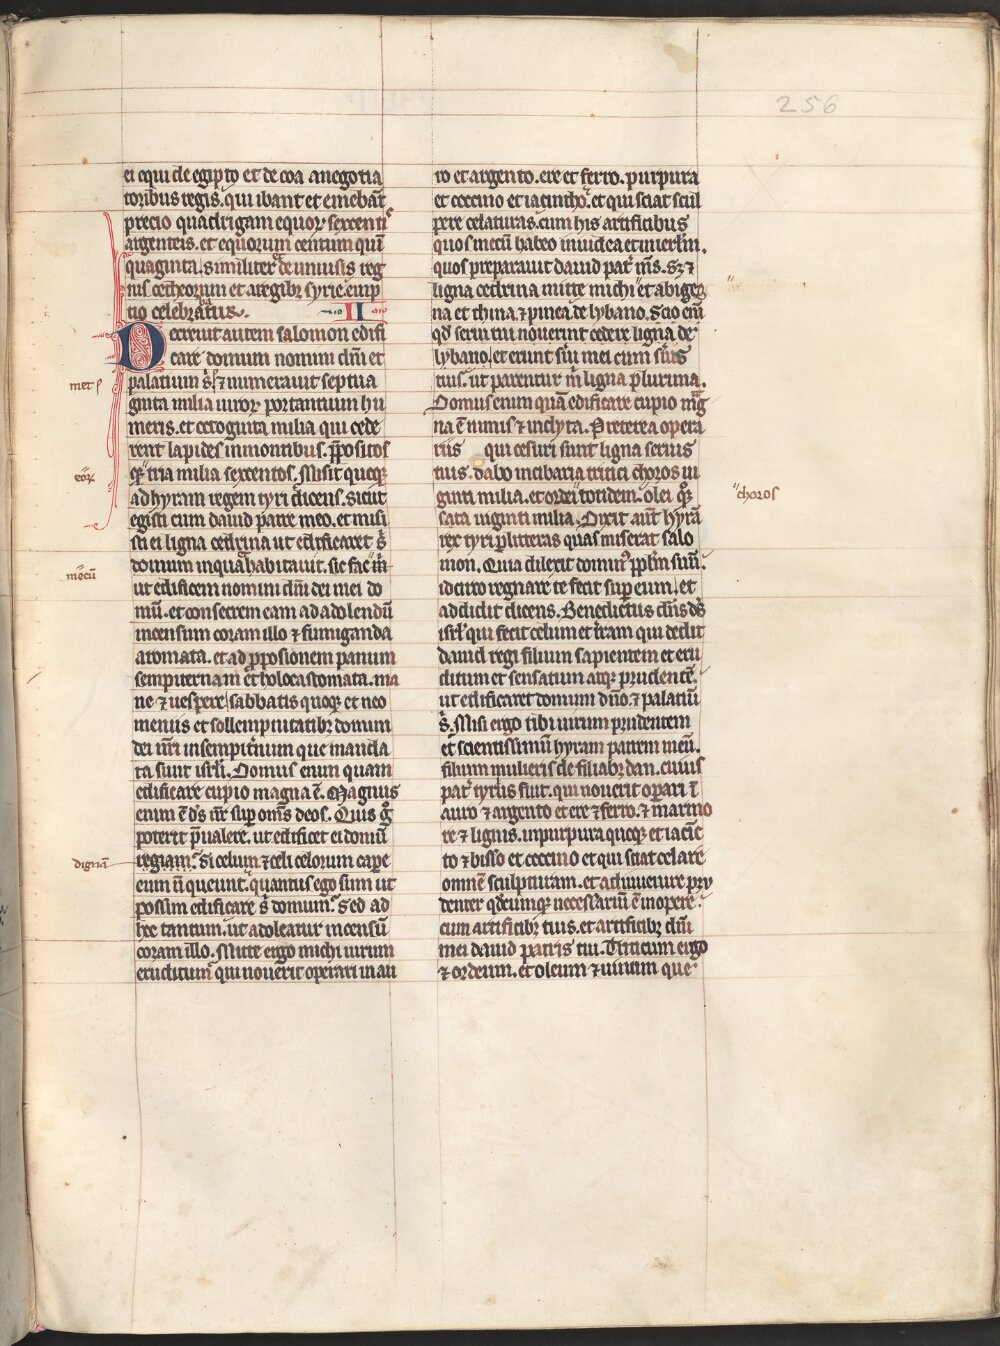 256
ei equi de egipto et de coa a negotia
toribus regis. qui ibant et emebāt
precio quadrigam equoꝝ sexcentis
argenteis. et equorum centum quin
quaginta. similiter de uniūsis reg
nis cetheorum et a regibꝫ syrie. emp
tio celebrabatur. II
Decreuit autem salomon edifi
care domum nomini dn̄i et
palatium s̄. ⁊ numerauit septua
ginta milia uiroꝝ portantium hu
meris. et octoginta milia qui cede
rent lapides in montibus. p̄positos
qꝫ tria milia sexcentos. Misit quoqꝫ
ad hyram regem tyri dicens. sicut
egisti cum dauid patre meo. et misi
sti ei ligna cedrina ut edificaret s̄
domum in qua habitauit. sic fac
ut edificem nomini dn̄i dei mei do
mū. et consecrem eam ad adolendū
incensum coram illo ⁊ fumiganda
aromata. et ad ꝓposionem panum
sempiternam et holocastomata. ma
ne ⁊ uespere. sabbatis quoqꝫ et neo
meniis et sollempnitatibꝫ domini
dei nr̄i in sempit̄num que manda
ta sunt isrl̄i. Domus enim quam
edificare cupio magna ē. Magnus
enim ē ds̄ nr̄ sup om̄s deos. Quis g̊
poterit p̄ualere. ut edificet ei domū
regiam. Si celum ⁊ celi celorum cape
eum n̄ queunt. quantus ego sum ut
possim edificare s̄ domum. Sed ad
hec tantum. ut adoleatur incensū
coram illo. Mitte ergo michi uirum
eruditum qui nouerit operari in au
ro et argento. ere et ferro. purpura
et coccino et iacincho. et qui sciat scul
pere celaturas. cum his artificibus
quos mecū habeo in iudea et in ierl̄m.
quos preparauit dauid pat̄ m̄s. sꝫ ⁊
ligna cedrina mitte michi et abieg
na et thina. ⁊ pinea de lybano. Scio eni
qd̄ serui tui nouerint cedere ligna de
lybano. et erunt s̄ui mei cum s̄uis
tuis. ut parentur m̄ ligna plurima.
Domus enim quā edificare cupio mag
na ē nimis ⁊ inclyta. Preterea opera
riis qui cesuri sunt ligna seruis
tuis. dabo in cibaria tritici choros ui
ginti milia. et ordei totidem. olei qꝫ
sata uiginti milia. Dixit aut̄ hyrā
rex tyri p litteras quas miserat salo
mon. Quia dilexit domin9 pplm̄ suū.
idcirco regnare te fecit sup eum. et
addidit dicens. Benedictus dn̄s ds̄
isrl̄ qui fecit celum et t̄ram qui dedit
dauid regi filium sapientem et eru
ditum et sensatum atqꝫ prudentē.
ut edificaret domum dn̄o. ⁊ palatiū
s̄. Misi ergo tibi uirum prudentem
et scientissimū hyram patrem meū.
filium mulieris de filiabꝫ dan. cuius
pat̄ tyrius fuit. qui nouerit operari ī
auro ⁊ argento et ere ⁊ ferro. ⁊ marmo
re ⁊ lignis. in purpura quoqꝫ et iacīc
to ⁊ bisso et coccino et qui sciat celare
omnē sculpturam. et adinuenire pru
denter qd̄cumqꝫ necessariū ē in opere.
cum artificibꝫ tuis. et artificibꝫ dn̄i
mei dauid patris tui. Triticum ergo
⁊ ordeum. et oleum ⁊ uinum que
eoꝝ
mecū
dignā
choros